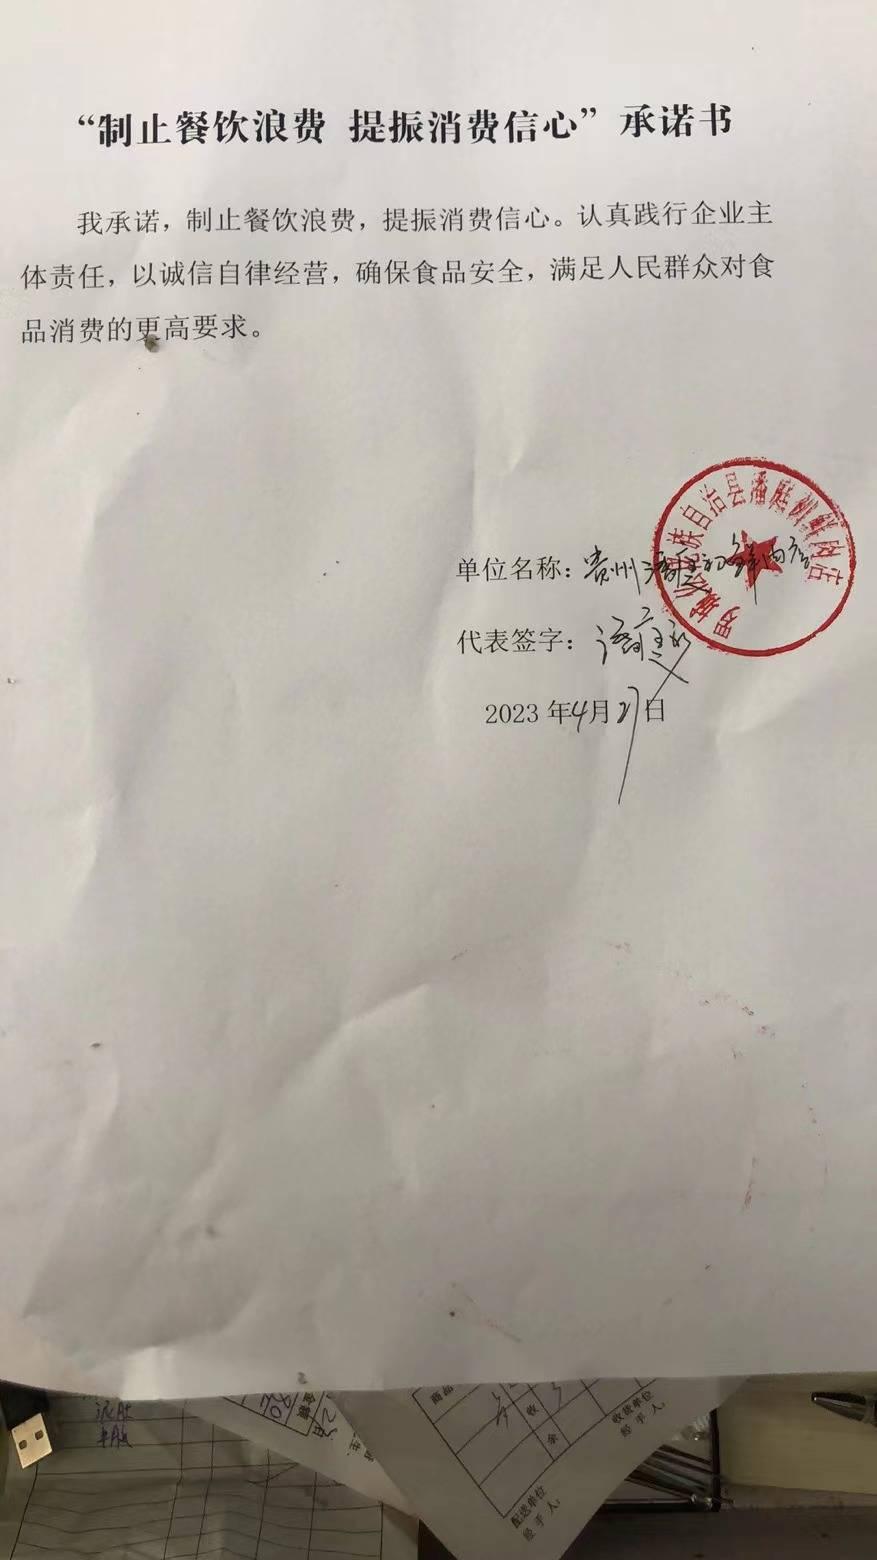 “制止餐饮浪费 提振消费信心”承诺书
我承诺，制止餐饮浪费，提振消费信心。认真践行企业主
体责任，以诚信自律经营，确保食品安全，满足人民群众对食
品消费的更高要求。
自治县潘庭刚鲜肉店
单位名称：贵州潘庭刚鲜肉店
代表签字：潘庭刚
2023年4月27日
商品
收
余
收货单位
经手人：
配送单位
经手人：